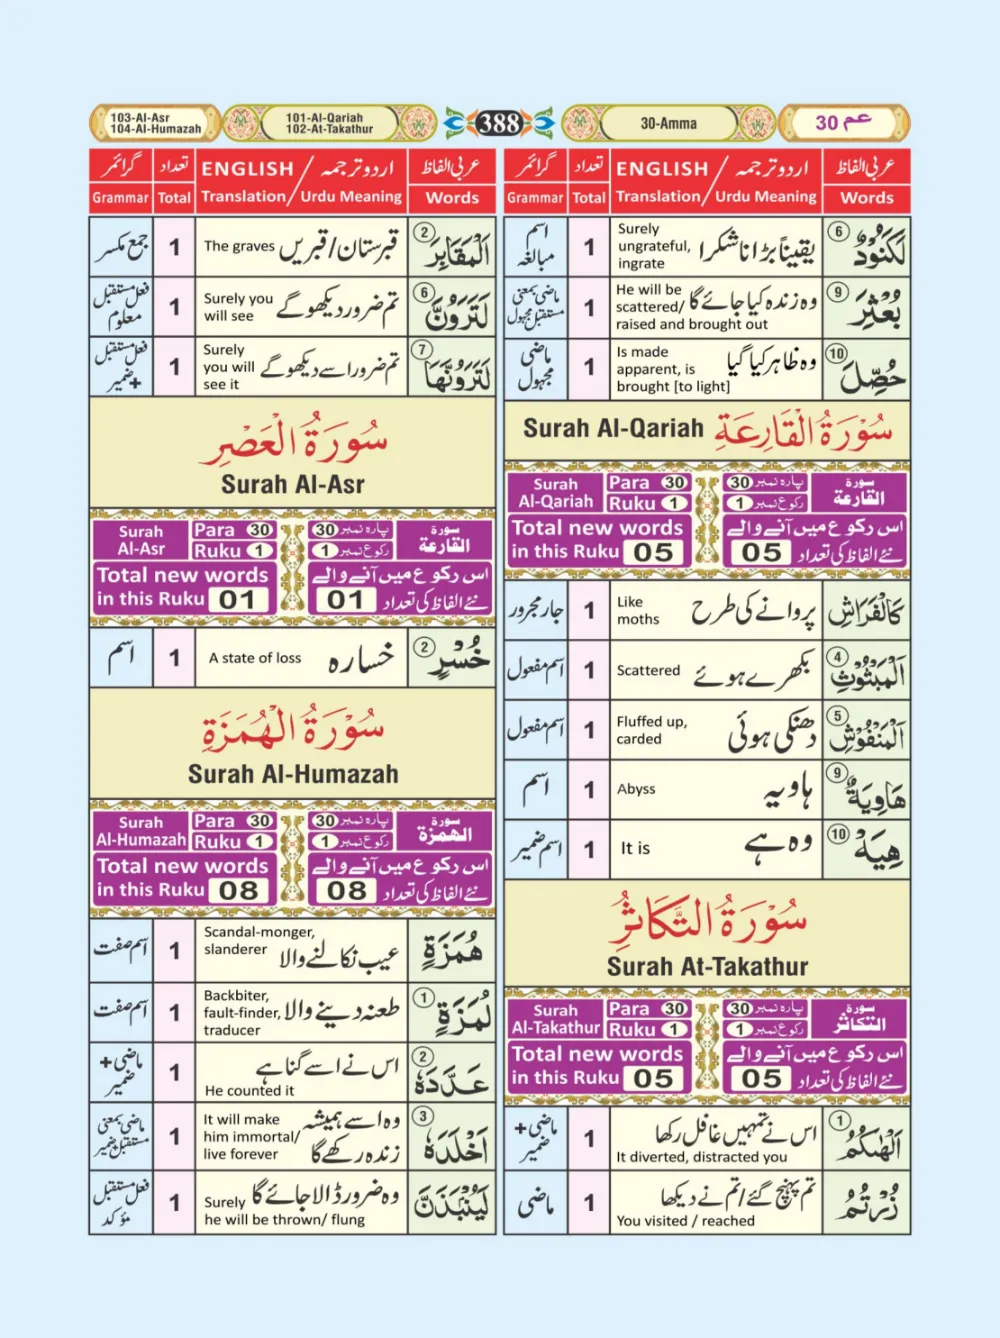 103-Al-Asr
104-Al-Humazah
101-Al-Qariah
102-At-Takathur
388
30-Amma
عم 30
عربی الفاظ
اردو ترجمہ / ENGLISH
تعداد
گرائمر
Words
Translation/ Urdu Meaning
Total
Grammar
لَكَنُوْدٌ ⑥
یقیناً بڑا ناشکرا
Surely
ungrateful,
ingrate
1
اسم
مبالغہ
بُعْثِرَ ⑨
وہ زندہ کیا جائے گا
He will be
scattered/
raised and brought out
1
ماضی بمعنی
مستقبل مجہول
حُصِّلَ ⑩
وہ ظاہر کیا گیا
Is made
apparent, is
brought [to light]
1
ماضی
مجہول
Surah Al-Qariah سُوْرَةُ الْقَارِعَةِ
Surah
Al-Qariah
Para 30
Ruku 1
پارہ نمبر 30
رکوع نمبر 1
سورة
القارعة
Total new words
in this Ruku 05
اس رکوع میں آنے والے
نئے الفاظ کی تعداد 05
كَالْفَرَاشِ
پروانے کی طرح
Like
moths
1
جار مجرور
الْمَبْثُوْثِ ④
بکھرے ہوئے
Scattered
1
اسم مفعول
الْمَنْفُوْشِ ⑤
دھنکی ہوئی
Fluffed up,
carded
1
اسم مفعول
هَاوِيَةٌ ⑨
ہاویہ
Abyss
1
اسم
هِيَهْ ⑩
وہ ہے
It is
1
اسم ضمیر
سُوْرَةُ التَّكَاثُرِ
Surah At-Takathur
Surah
Al-Takathur
Para 30
Ruku 1
پارہ نمبر 30
رکوع نمبر 1
سورة
التكاثر
Total new words
in this Ruku 05
اس رکوع میں آنے والے
نئے الفاظ کی تعداد 05
اَلْهٰىكُمُ ①
اس نے تمہیں غافل رکھا
It diverted, distracted you
1
ماضی +
ضمیر
زُرْتُمُ
تم پہنچ گئے/تم نے دیکھا
You visited / reached
1
ماضی
عربی الفاظ
اردو ترجمہ / ENGLISH
تعداد
گرائمر
Words
Translation/ Urdu Meaning
Total
Grammar
الْمَقَابِرَ ②
قبرستان/قبریں
The graves
1
جمع مکسر
لَتَرَوُنَّ ⑥
تم ضرور دیکھو گے
Surely you
will see
1
فعل مستقبل
معلوم
لَتَرَوُنَّهَا ⑦
تم ضرور اسے دیکھو گے
Surely
you will
see it
1
فعل مستقبل
+ضمیر
سُوْرَةُ الْعَصْرِ
Surah Al-Asr
Surah
Al-Asr
Para 30
Ruku 1
پارہ نمبر 30
رکوع نمبر 1
سورة
القارعة
Total new words
in this Ruku 01
اس رکوع میں آنے والے
نئے الفاظ کی تعداد 01
خُسْرٍ ②
خسارہ
A state of loss
1
اسم
سُوْرَةُ الْهُمَزَةِ
Surah Al-Humazah
Surah
Al-Humazah
Para 30
Ruku 1
پارہ نمبر 30
رکوع نمبر 1
سورة
الهمزة
Total new words
in this Ruku 08
اس رکوع میں آنے والے
نئے الفاظ کی تعداد 08
هُمَزَةٍ
عیب نکالنے والا
Scandal-monger,
slanderer
1
اسم صفت
لُمَزَةٍ ①
طعنہ دینے والا
Backbiter,
fault-finder,
traducer
1
اسم صفت
عَدَّدَهٗ ②
اس نے اسے گنا ہے
He counted it
1
ماضی +
ضمیر
اَخْلَدَهٗ ③
وہ اسے ہمیشہ
زندہ رکھے گا
It will make
him immortal/
live forever
1
ماضی بمعنی
مستقبل ضمیر
لَيُنْبَذَنَّ
وہ ضرور ڈالا جائے گا
Surely
he will be thrown/ flung
1
فعل مستقبل
مؤکد